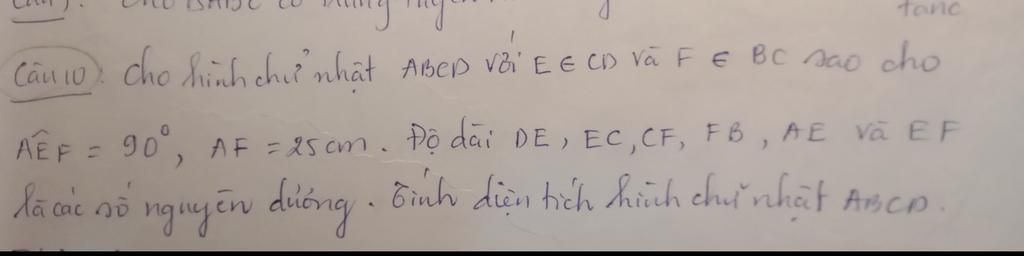 Câu 10): Cho hình chữ nhật ABCD với E ∈ CD và F ∈ BC sao cho
AÊF = 90⁰, AF = 25 cm. Độ dài DE, EC, CF, FB, AE và EF
là các số nguyên dương. Tính diện tích hình chữ nhật ABCD.